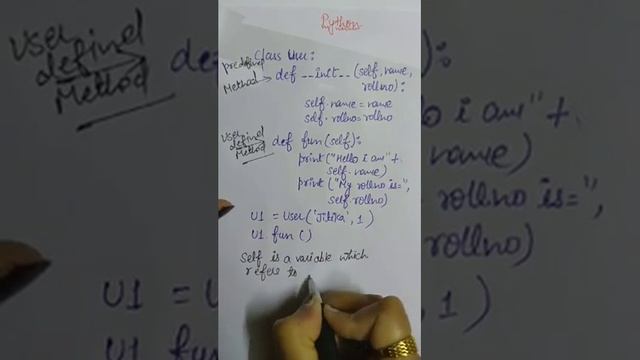 Python
Class User:
predefined
Method
def __init__(self, name,
rollno):
self.name = name
self.rollno = rollno
User
defined
Method
def fun(self):
print("Hello i am" +
self.name)
print("My rollno is=",
self.rollno)
U1 = User('Jitika', 1)
U1.fun()
Self is a variable which
refere to